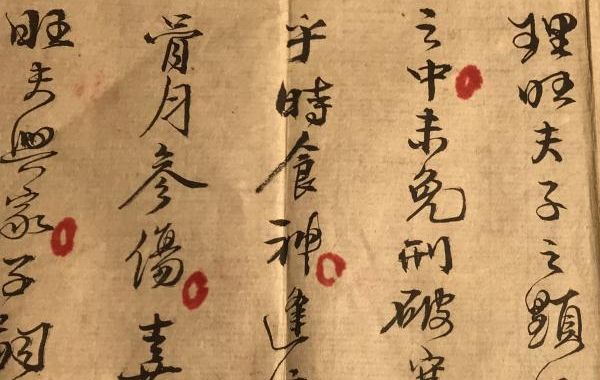 理旺夫子之顯
之中未免刑破
乎時食神逢
骨月参傷喜
旺夫興家子嗣